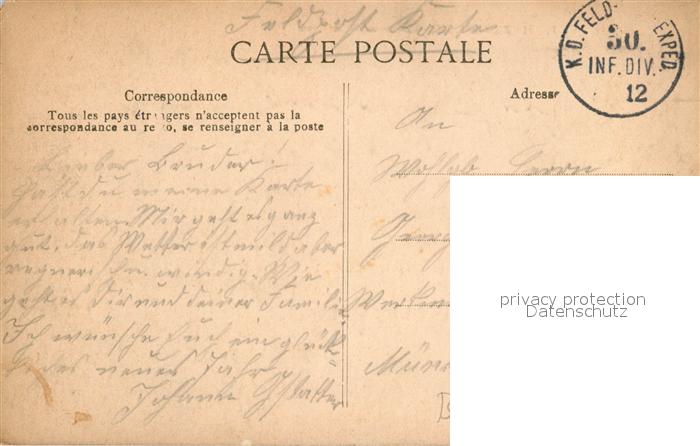 Feldpost Karte
CARTE POSTALE
K.D. FELD- EXPED.
30.
INF. DIV.
12
Correspondance
Adresse
Tous les pays étrangers n'acceptent pas la
correspondance au recto, se renseigner à la poste
Lieber Bruder!
Hast du meine Karte
erhalten. Mir geht es ganz
gut. das Wetter ist mild aber
regnerisch u. windig. Wie
geht es Dir und deiner Familie
Ich wünsche Euch ein glück-
des neues Jahr
Johann
An
Wohlgb. Herrn
Georg
Mün
privacy protection
Datenschutz